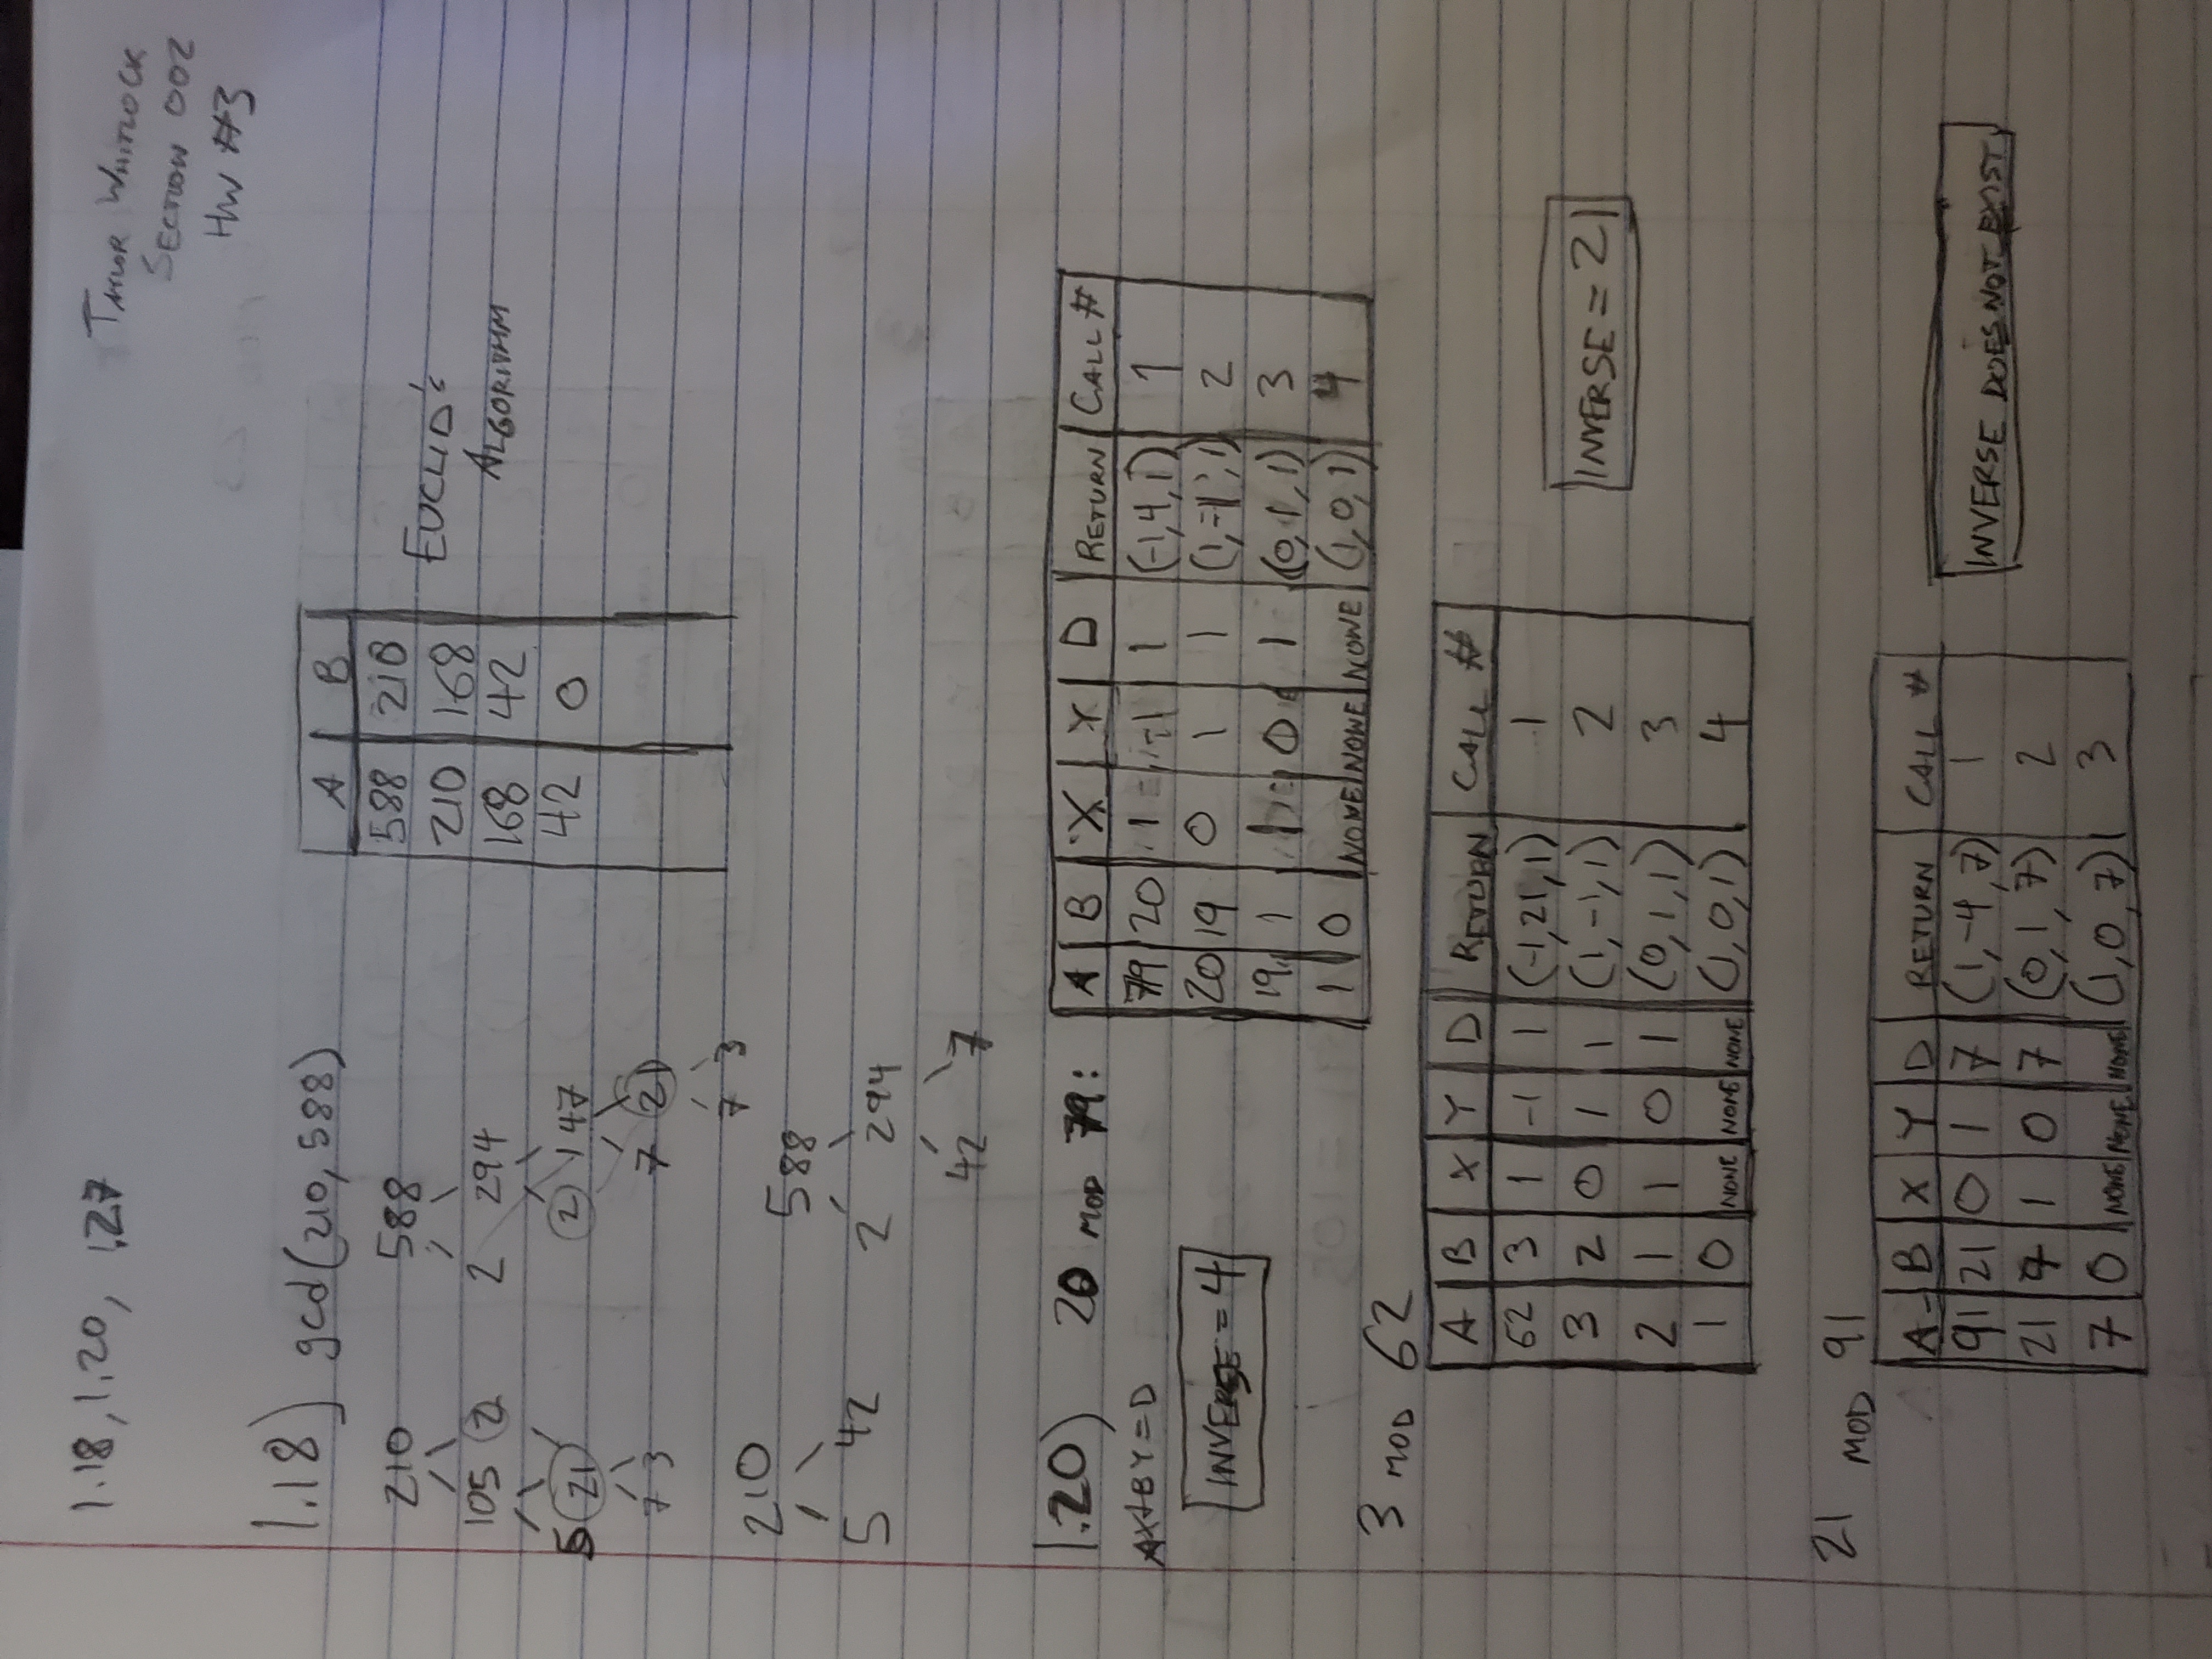 1.18, 1.20, 1.27
TAYLOR WHITLOCK
SECTION 002
HW #3
1.18) gcd(210, 588)
210 588
105 2 2 294
5 21 2 147
7 3 7 21
7 3
A B
588 210
210 168
168 42
42 0
EUCLID's
ALGORITHM
210 588
5 42 2 294
42 7
1.20) 20 MOD 79:
AX+BY=D
INVERSE = 4
A B X Y D RETURN CALL #
79 20 1 -1 1 (-1,4,1) 1
20 19 0 1 1 (1,-1,1) 2
19 1 1 0 1 (0,1,1) 3
1 0 NONE NONE NONE (1,0,1) 4
3 MOD 62
A B X Y D RETURN CALL #
62 3 1 -1 1 (-1,21,1) 1
3 2 0 1 1 (1,-1,1) 2
2 1 1 0 1 (0,1,1) 3
1 0 NONE NONE NONE (1,0,1) 4
INVERSE = 21
21 MOD 91
A B X Y D RETURN CALL #
91 21 0 1 7 (1,-4,7) 1
21 7 1 0 7 (0,1,7) 2
7 0 NONE NONE NONE (1,0,7) 3
INVERSE DOES NOT EXIST